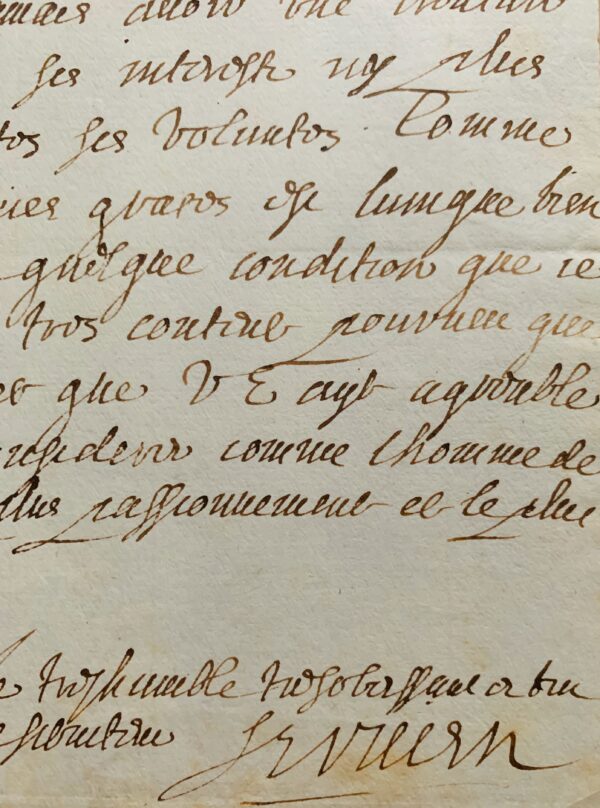 jamais avoir une
ses interests ny plus
tes ses volontes Comme
graces est lunique bien
quelque condition que ie
tres content pourveu que
et que V E ayt agreable
considerer comme lhomme de
plus passionnement et le plus
treshumble tresobeissant et
serviteur Servien